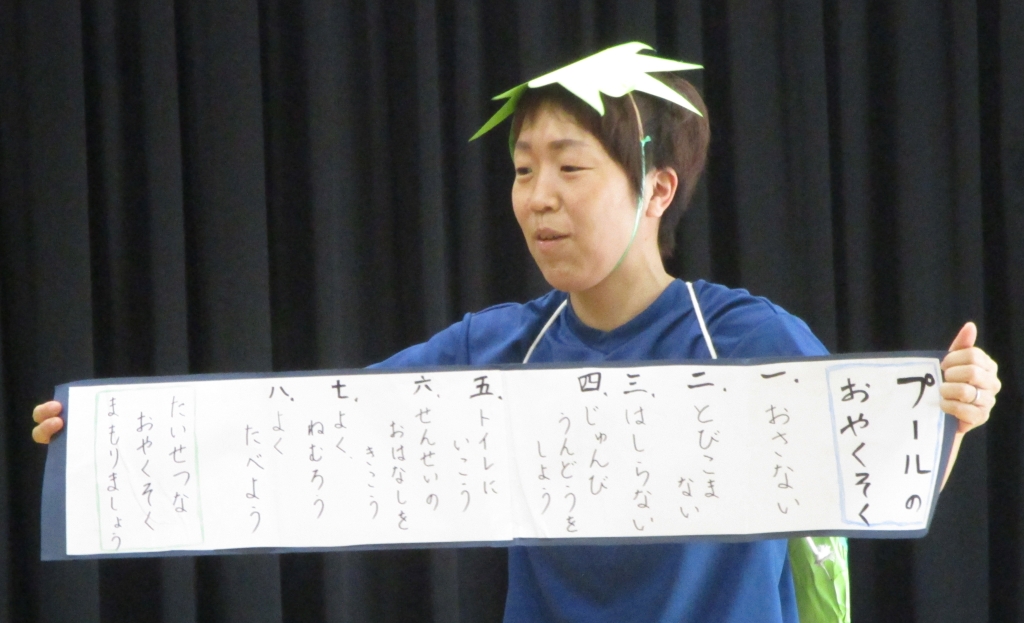 プールの
おやくそく
一、おさない
二、とびこま
ない
三、はしらない
四、じゅんび
うんどうを
しよう
五、トイレに
いこう
六、せんせいの
おはなしを
きこう
七、よく
ねむろう
八、よく
たべよう
たいせつな
おやくそく
まもりましょう